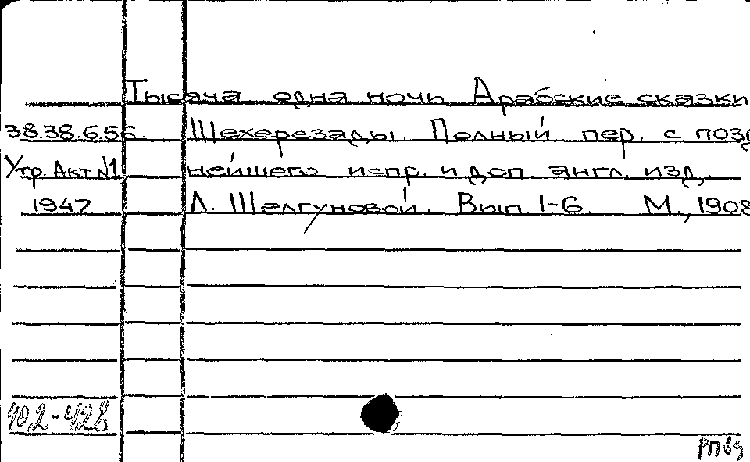 Тысяча одна ночь Арабские сказки
38.38.6.56. Шехерезады Полный пер. с позд
Утр. Акт №1 нейшего испр. и доп. англ. изд,
1947 Л. Шелгуновой. Вып 1-6 М., 1908
402-428